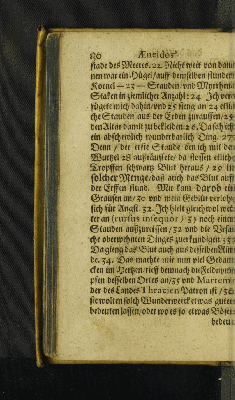 86 Æneidos
stade des Meeres. 22. Nicht weit von dann
nen war ein Hügel/ auff demselben stunden
Kornel — 23 — Stauden/ und Myrrhen
Staken in ziemlicher Anzahl: 24. Ich ver
fügete mich dahin/ und 25 fieng an 24 etli
che Stauden aus der Erden zuraussen/ 25
den Altar damit zu bekleiden 26. Da sich ich
ein abscheulich wunderbarlich Ding. 27
Denn / die erste Staude den ich mit der
Wurtzel 28 außrauffete/ da flossen etliche
Tropffen schwartz Blut heraus / 29 in
solcher Menge/ daß auch das Blut auff
der Erden stund. Mir kam darob ein
Grausen an/ 30 und mein Geblüt
sich für Angst. 32. Ich hielt gleichwol
er an (rursus insequor / 33 noch einen
Stauden außzureissen / 32 und die Ursa
che obernhnten Dinges zuerkundigen 33
Da gieng das Blut auch aus
de. 34. Das machte mir nun viel Gedan
cken im Hertzen/ rieff demnach die Feldnym
pfen desselben Ortes an/ 35 und Martem
der des Landes Thracien Patron ist / 36
sie wolten solch Wunderwerck etwas gutes
bedeuten lassen/ oder wo es jo etwas Böses
bedeu